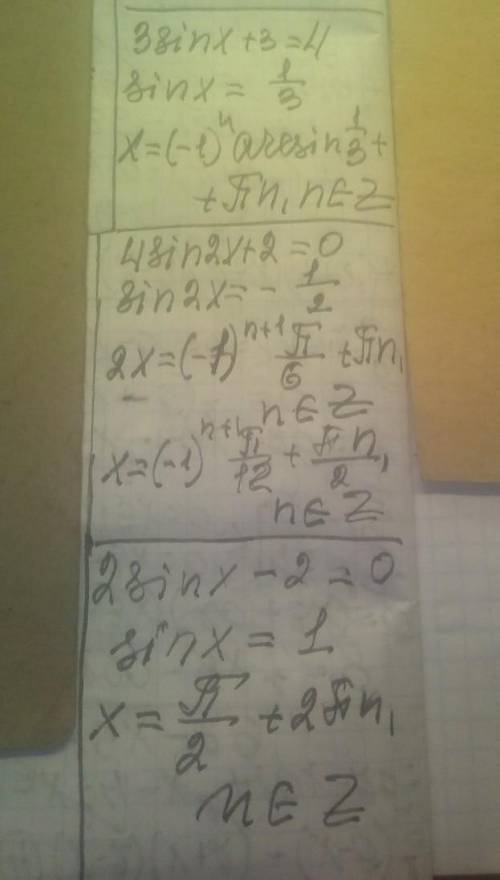 3sinx+3=4
sinx = 1/3
x=(-1)ⁿ arcsin 1/3 +
+ πn, n∈Z
4sin2x+2=0
sin2x= - 1/2
2x=(-1)ⁿ⁺¹ π/6 + πn,
n∈Z
x=(-1)ⁿ⁺¹ π/12 + πn/2,
n∈Z
2sinx - 2 = 0
sinx = 1
x = π/2 + 2πn,
n∈Z